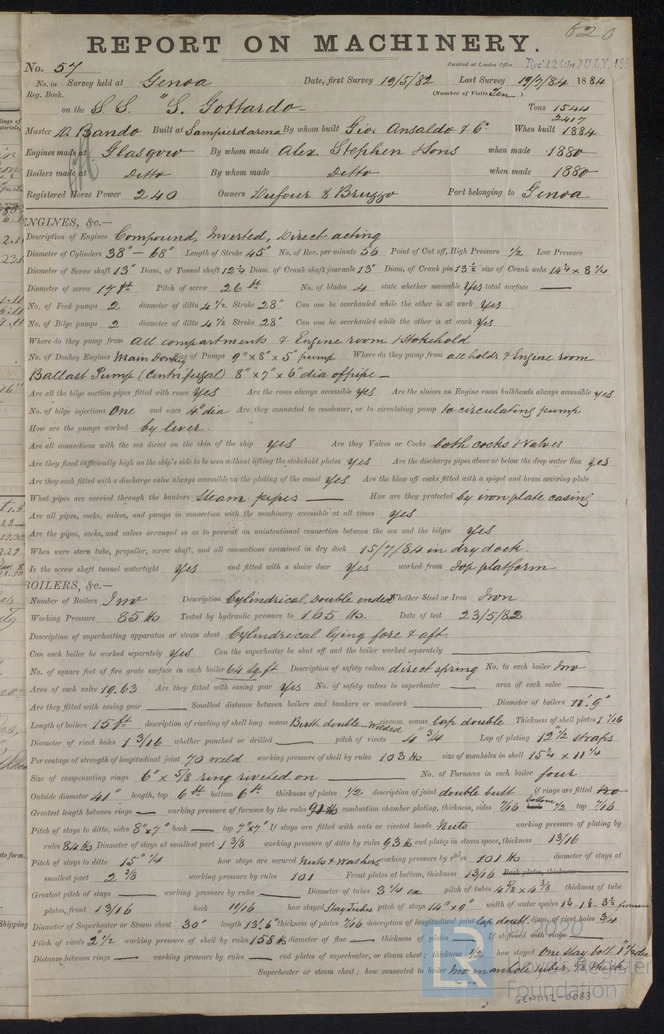 620
REPORT ON MACHINERY.
No. 57 Received at London Office, Rec'd 26th JULY, 188
No. in Survey held at Genoa Date, first Survey 19/5/82 Last Survey 19/7/84 1884
Reg. Book. (Number of Visits Ten)
on the S.S. "S. Gottardo" Tons 1544
2417
Master D. Bando Built at Sampierdarena By whom built Gio. Ansaldo & Co. When built 1884
Engines made at Glasgow By whom made Alex. Stephen & Sons when made 1880
Boilers made at Ditto By whom made Ditto when made 1880
Registered Horse Power 240 Owners Dufour & Bruzzo Port belonging to Genoa
ENGINES, &c.—
Description of Engines Compound, Inverted, Direct acting
Diameter of Cylinders 38" - 68" Length of Stroke 45" No. of Rev. per minute 56 Point of Cut off, High Pressure 1/2 Low Pressure
Diameter of Screw shaft 13" Diam. of Tunnel shaft 12 1/4 Diam. of Crank shaft journals 13" Diam. of Crank pin 13 1/2 size of Crank webs 14 3/4 x 8 1/4
Diameter of screw 17 ft Pitch of screw 26 ft No. of blades 4 state whether moveable Yes total surface —
No. of Feed pumps 2 diameter of ditto 4 1/2 Stroke 28" Can one be overhauled while the other is at work Yes
No. of Bilge pumps 2 diameter of ditto 4 1/2 Stroke 28" Can one be overhauled while the other is at work Yes
Where do they pump from All compartments & Engine room & Stokehold
No. of Donkey Engines Main Donkey Size of Pumps 9" x 8" x 5" pump Where do they pump from all holds & Engine room
Ballast Pump (Centrifugal) 8" x 7" x 6" dia of pipe —
Are all the bilge suction pipes fitted with roses Yes Are the roses always accessible Yes Are the sluices on Engine room bulkheads always accessible yes
No. of bilge injections One and sizes 4" dia Are they connected to condenser, or to circulating pump to circulating pump
How are the pumps worked by lever
Are all connections with the sea direct on the skin of the ship yes Are they Valves or Cocks both cocks & valves
Are they fixed sufficiently high on the ship's side to be seen without lifting the stokehold plates yes Are the discharge pipes above or below the deep water line yes
Are they each fitted with a discharge valve always accessible on the plating of the vessel yes Are the blow off cocks fitted with a spigot and brass covering plate
What pipes are carried through the bunkers Steam pipes — How are they protected by iron plate casing
Are all pipes, cocks, valves, and pumps in connection with the machinery accessible at all times yes
Are the pipes, cocks, and valves arranged so as to prevent an unintentional connection between the sea and the bilges yes
When were stern tube, propeller, screw shaft, and all connections examined in dry dock 15/7/84 in dry dock.
Is the screw shaft tunnel watertight yes and fitted with a sluice door yes worked from top platform
BOILERS, &c.—
Number of Boilers Two Description Cylindrical, Double ended Whether Steel or Iron Iron
Working Pressure 85 lbs Tested by hydraulic pressure to 165 lbs. Date of test 23/5/82
Description of superheating apparatus or steam chest Cylindrical lying fore & aft.
Can each boiler be worked separately yes Can the superheater be shut off and the boiler worked separately —
No. of square feet of fire grate surface in each boiler 64 sq. ft Description of safety valves direct spring No. to each boiler two
Area of each valve 19.63 Are they fitted with easing gear Yes No. of safety valves to superheater — area of each valve —
Are they fitted with easing gear — Smallest distance between boilers and bunkers or woodwork — Diameter of boilers 11'. 9"
Length of boilers 15 ft description of riveting of shell long. seams Butt. double - welded circum. seams lap double Thickness of shell plates 1 1/16
Diameter of rivet holes 1 3/16 whether punched or drilled — pitch of rivets 4" 3/4 Lap of plating 12" 1/2 straps
Per centage of strength of longitudinal joint 70 weld working pressure of shell by rules 103 lbs size of manholes in shell 15 1/4 x 11 1/4
Size of compensating rings 6" x 5/8 ring riveted on — No. of Furnaces in each boiler four
Outside diameter 41" length, top 6 ft bottom 6 ft thickness of plates 1/2 description of joint double butt if rings are fitted two
Greatest length between rings — working pressure of furnace by the rules 91 lbs combustion chamber plating, thickness, sides 7/16 bottom 1/2 top 7/16
Pitch of stays to ditto, sides 8" x 7" back — top 7" x 7" If stays are fitted with nuts or riveted heads Nuts working pressure of plating by
rules 84 lbs Diameter of stays at smallest part 1 3/8 working pressure of ditto by rules 93 lbs end plates in steam space, thickness 13/16
Pitch of stays to ditto 15" 1/4 how stays are secured Nuts & Washers working pressure by rules 101 lbs diameter of stays at
smallest part 2 3/8 working pressure by rules 101 Front plates at bottom, thickness 13/16 Back plates, thickness
Greatest pitch of stays — working pressure by rules — Diameter of tubes 3 1/4 ea pitch of tubes 4 5/8 x 4 3/8 thickness of tube
plates, front 13/16 back 11/16 how stayed Stay Tubes pitch of stays 14" x 9" width of water spaces
Diameter of Superheater or Steam chest 30" length 13'. 6" thickness of plates 7/16 description of longitudinal joint lap doubl. diam. of rivet holes 3/4
Pitch of rivets 2" 1/2 working pressure of shell by rules 158 lbs diameter of flue — thickness of plates — If stiffened with rings —
Distance between rings — working pressure by rules — end plates of superheater, or steam chest; thickness 1/2 how stayed One stay bolt
Superheater or steam chest; how connected to boiler two manhole tubes 5/8 thick
© 2020
LR
Lloyd's Register
Foundation
GEN1112-0053